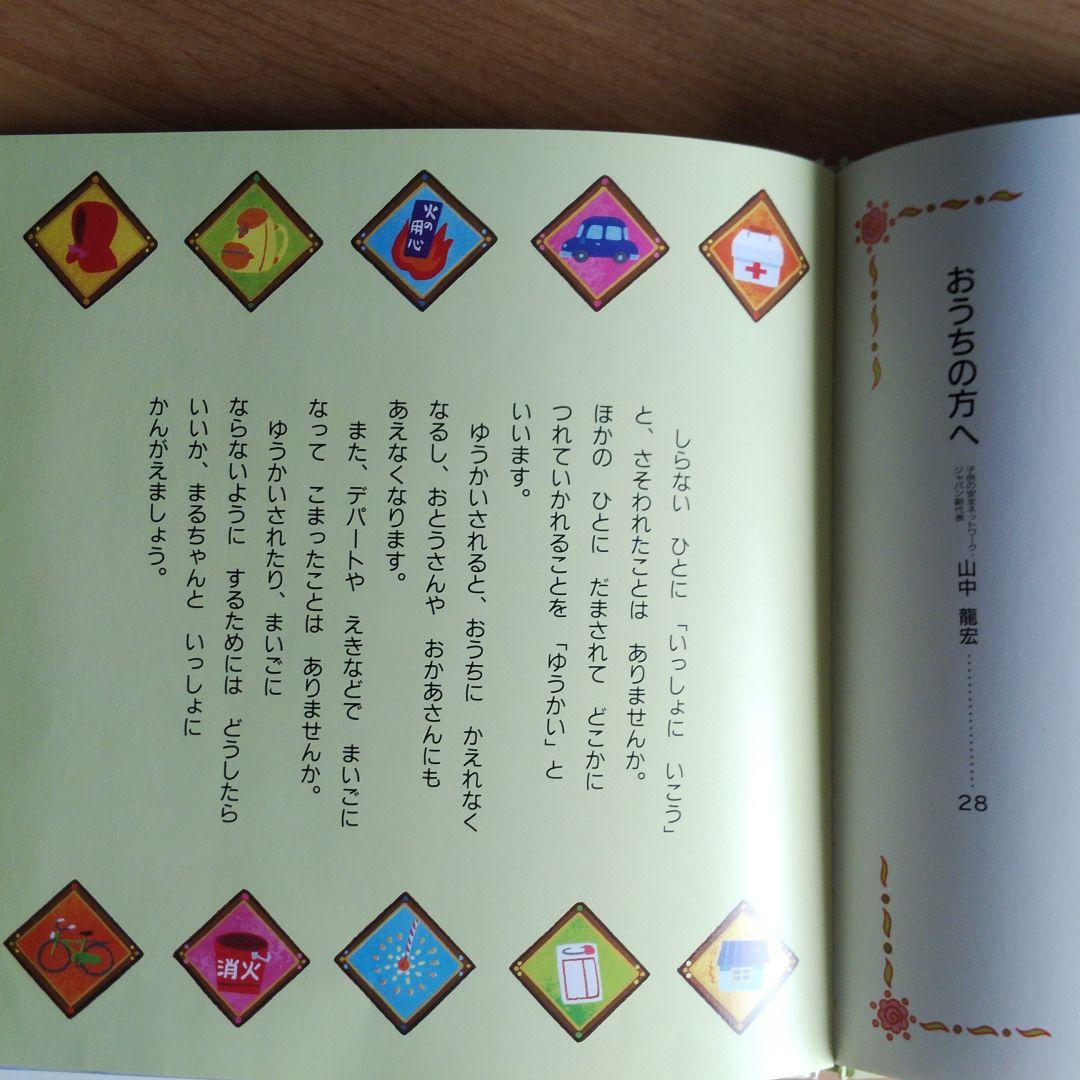 おうちの方へ
子供の安全ネットワーク・
ジャパン副代表
山中 龍宏……………………28
しらない ひとに 「いっしょに いこう」
と、さそわれたことは ありませんか。
ほかの ひとに だまされて どこかに
つれていかれることを 「ゆうかい」と
いいます。
ゆうかいされると、おうちに かえれなく
なるし、おとうさんや おかあさんにも
あえなくなります。
また、デパートや えきなどで まいごに
なって こまったことは ありませんか。
ゆうかいされたり、まいごに
ならないように するためには どうしたら
いいか、まるちゃんと いっしょに
かんがえましょう。
火の
用心
消火